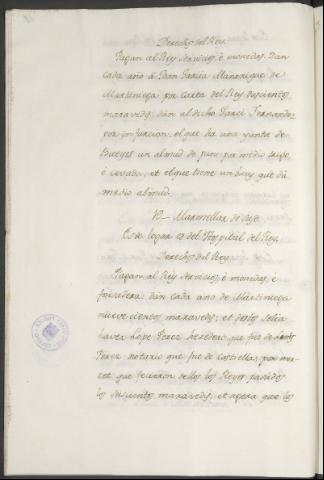 Derechos del Rey.
Pagan al Rey servicios, è monedas. Dan
cada año à Dºn Garcia Manrrique de
Martiniega por carta del Rey doscientos
maravedis: dan al dicho Garci Fernandez
por infurcion, el que ha una yunta de
Bueyes un almud de pan por medio trigo,
è cevada, et el que tiene un buey, que dá
medio almud.
Marmellar de
Este logar es del Hospital del Rey.
Derechos del Rey.
Pagan al Rey servicios, è monedas, è
fonsadera: dan cada año de Martiniega
nueve cientos maravedis; et destos solia
haver Lope Perez heredero que fue de
Perez notario que fue de Castiella, por mer-
cet que ficieron dellos los Reyes pasados
los seiscientos maravedis, et agora que los